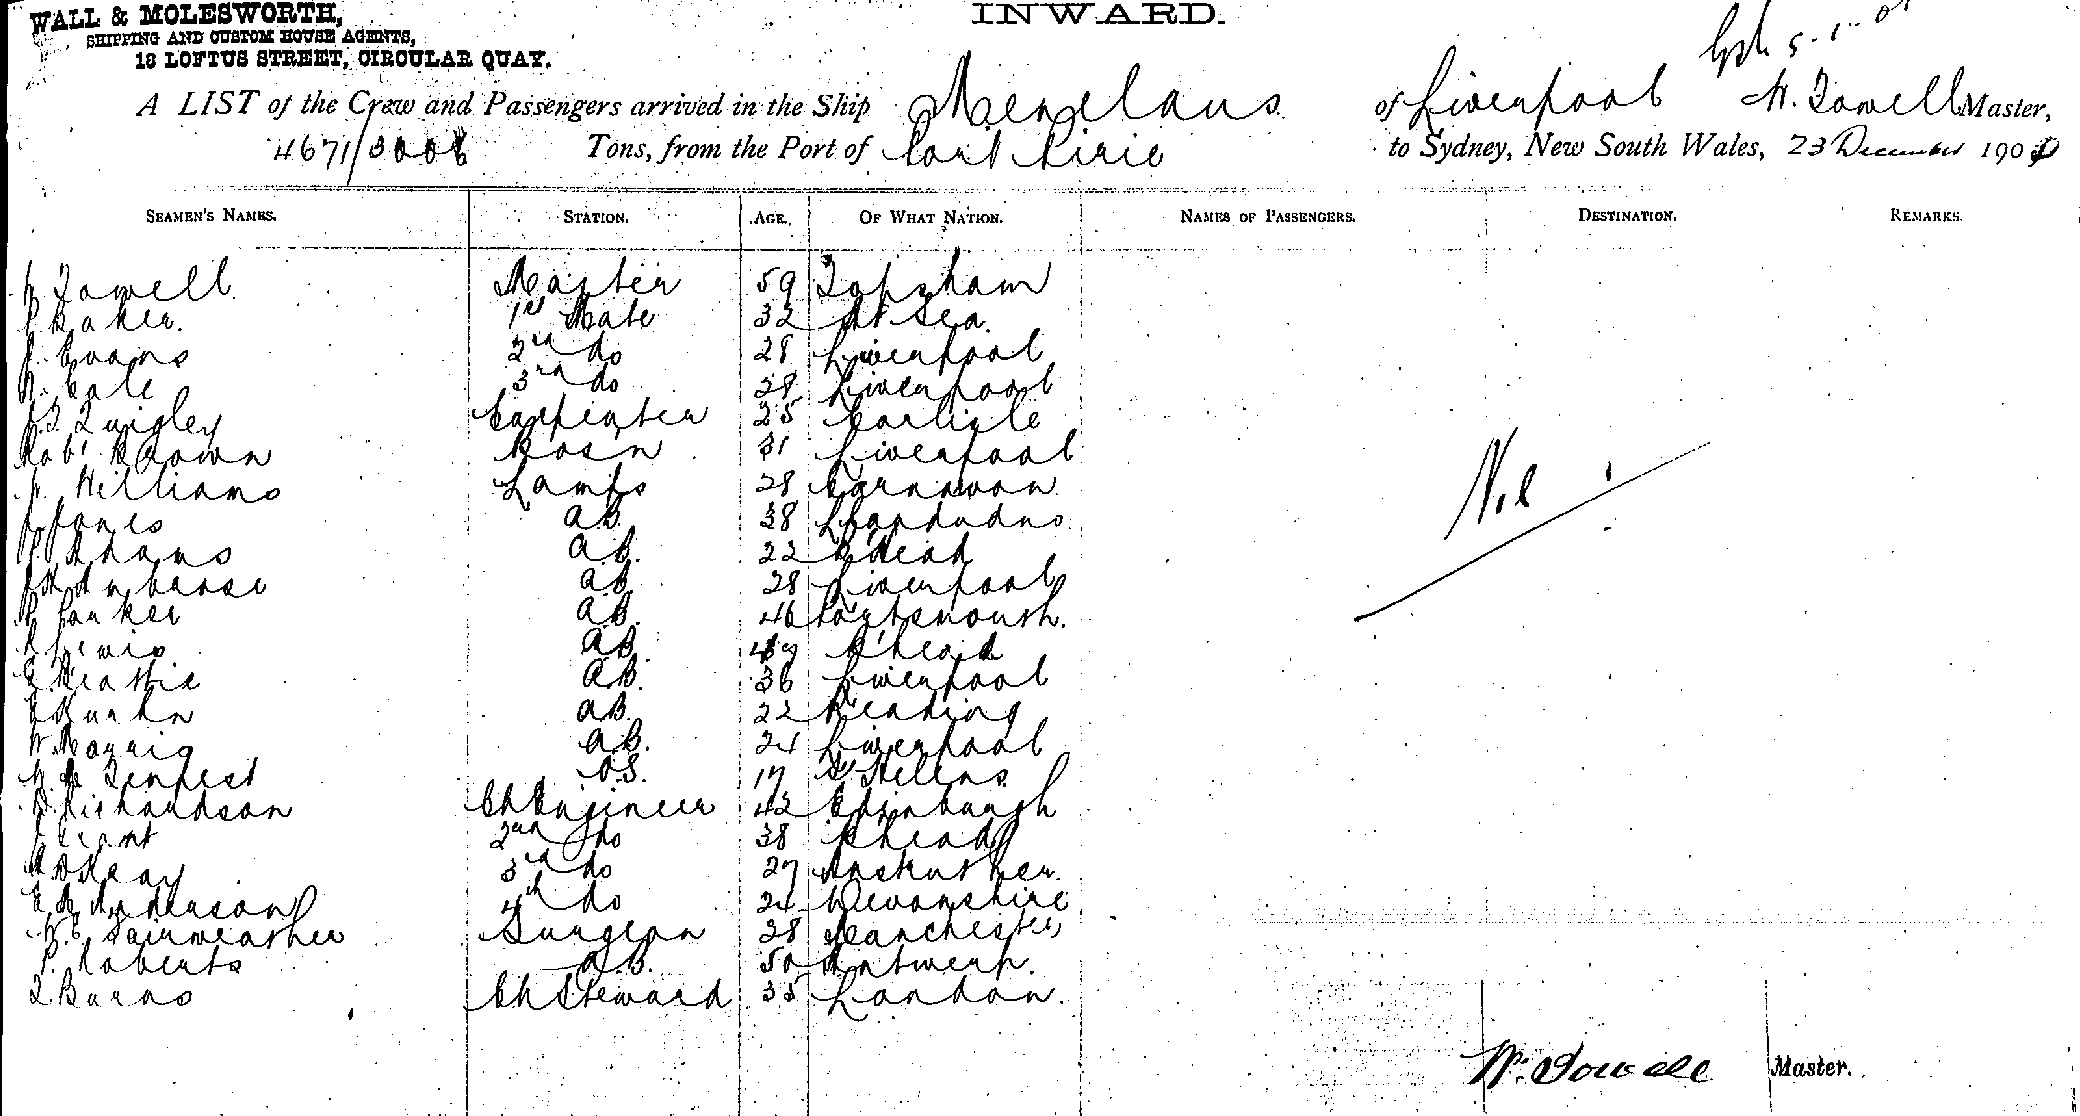 WALL & MOLESWORTH,
SHIPPING AND CUSTOM HOUSE AGENTS,
18 LOFTUS STREET, CIRCULAR QUAY.
INWARD.
A LIST of the Crew and Passengers arrived in the Ship Menelaus of Liverpool W. Towell Master,
4671/3006 Tons, from the Port of Port Pirie to Sydney, New South Wales, 23 December 190
SEAMEN'S NAMES. STATION. AGE. OF WHAT NATION. NAMES OF PASSENGERS. DESTINATION. REMARKS.
W Towell Master 59 Topsham
Baker. 1st Mate 32 At Sea.
J. Evans 2nd do 28 Liverpool
Cole 3rd do 28 Liverpool
Quigley Carpenter 25 Carlisle
Robt Brown Bosn 31 Liverpool
Williams Lamps 28 Carnavon
J Jones A.B. 38 Llandudno
A.B. 22 B'head
Ambrose A.B. 28 Liverpool
Parker A.B. 46 Portsmouth.
Lewis A.B. B'head
Beattie A.B. 36 Liverpool
A.B. 22 Reading
W A.B. 24 Liverpool
Tempest O.S. 17 St Helens
Richardson Ch Engineer 42 Edinburgh
Grant 2nd do 38 B'head
Keay 3rd do 27 Anstruther.
Anderson 4th do 24 Devonshire
W.E. Fairweather Surgeon 28 Manchester
P. Roberts A.B. 50 Antwerp.
T Burns Ch Steward 35 London.
Nil
W. Towell Master.